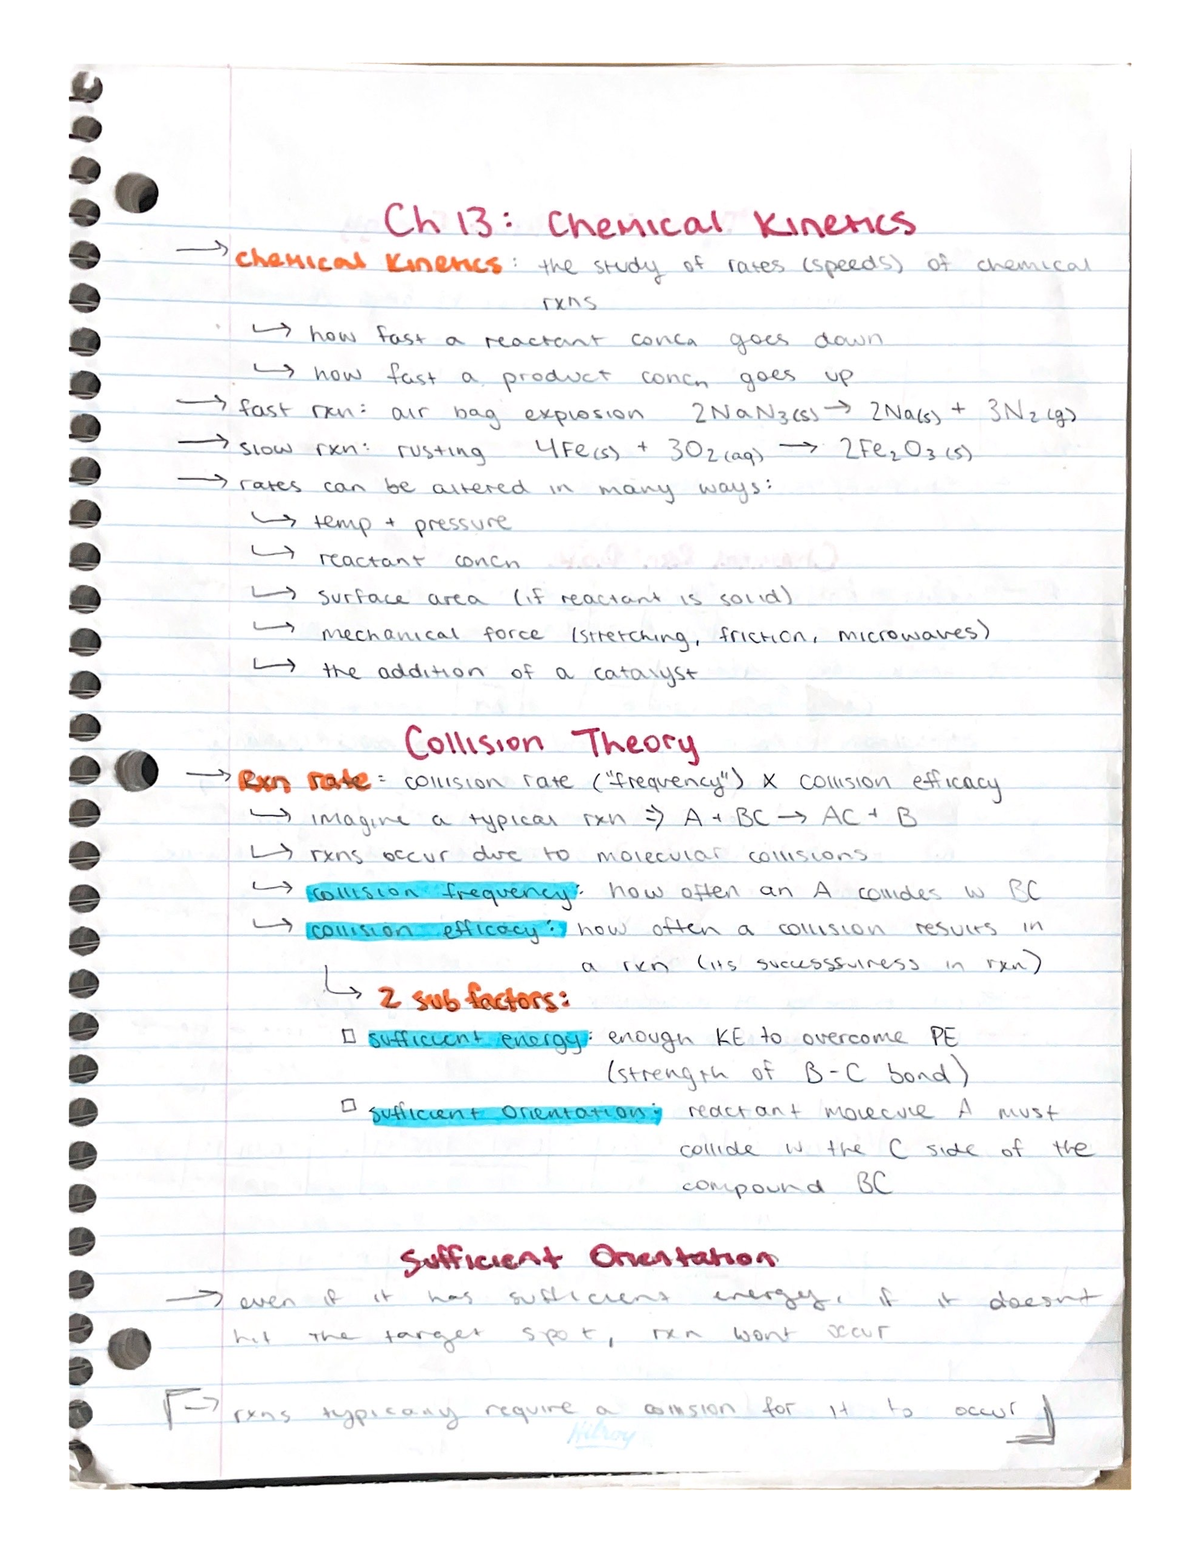 Ch 13: Chemical Kinetics
→ Chemical Kinetics: the study of rates (speeds) of chemical
rxns
↳ how fast a reactant concn goes down
↳ how fast a product concn goes up
→ fast rxn: air bag explosion 2NaN3(s) → 2Na(s) + 3N2(g)
→ slow rxn: rusting 4Fe(s) + 3O2(aq) → 2Fe2O3(s)
→ rates can be altered in many ways:
↳ temp + pressure
↳ reactant concn
↳ surface area (if reactant is solid)
↳ mechanical force (stretching, friction, microwaves)
↳ the addition of a catalyst
Collision Theory
→ Rxn rate: collision rate ("frequency") x collision efficacy
↳ imagine a typical rxn ⇒ A + BC → AC + B
↳ rxns occur due to molecular collisions
↳ collision frequency: how often an A collides w BC
↳ collision efficacy: how often a collision results in
a rxn (its successfulness in rxn)
↳ 2 sub factors:
□ sufficient energy: enough KE to overcome PE
(strength of B-C bond)
□ sufficient orientation: reactant molecule A must
collide w the C side of the
compound BC
Sufficient Orientation
→ even if it has sufficient energy, if it doesnt
hit the target spot, rxn wont occur
→ rxns typically require a collision for it to occur
Hilroy